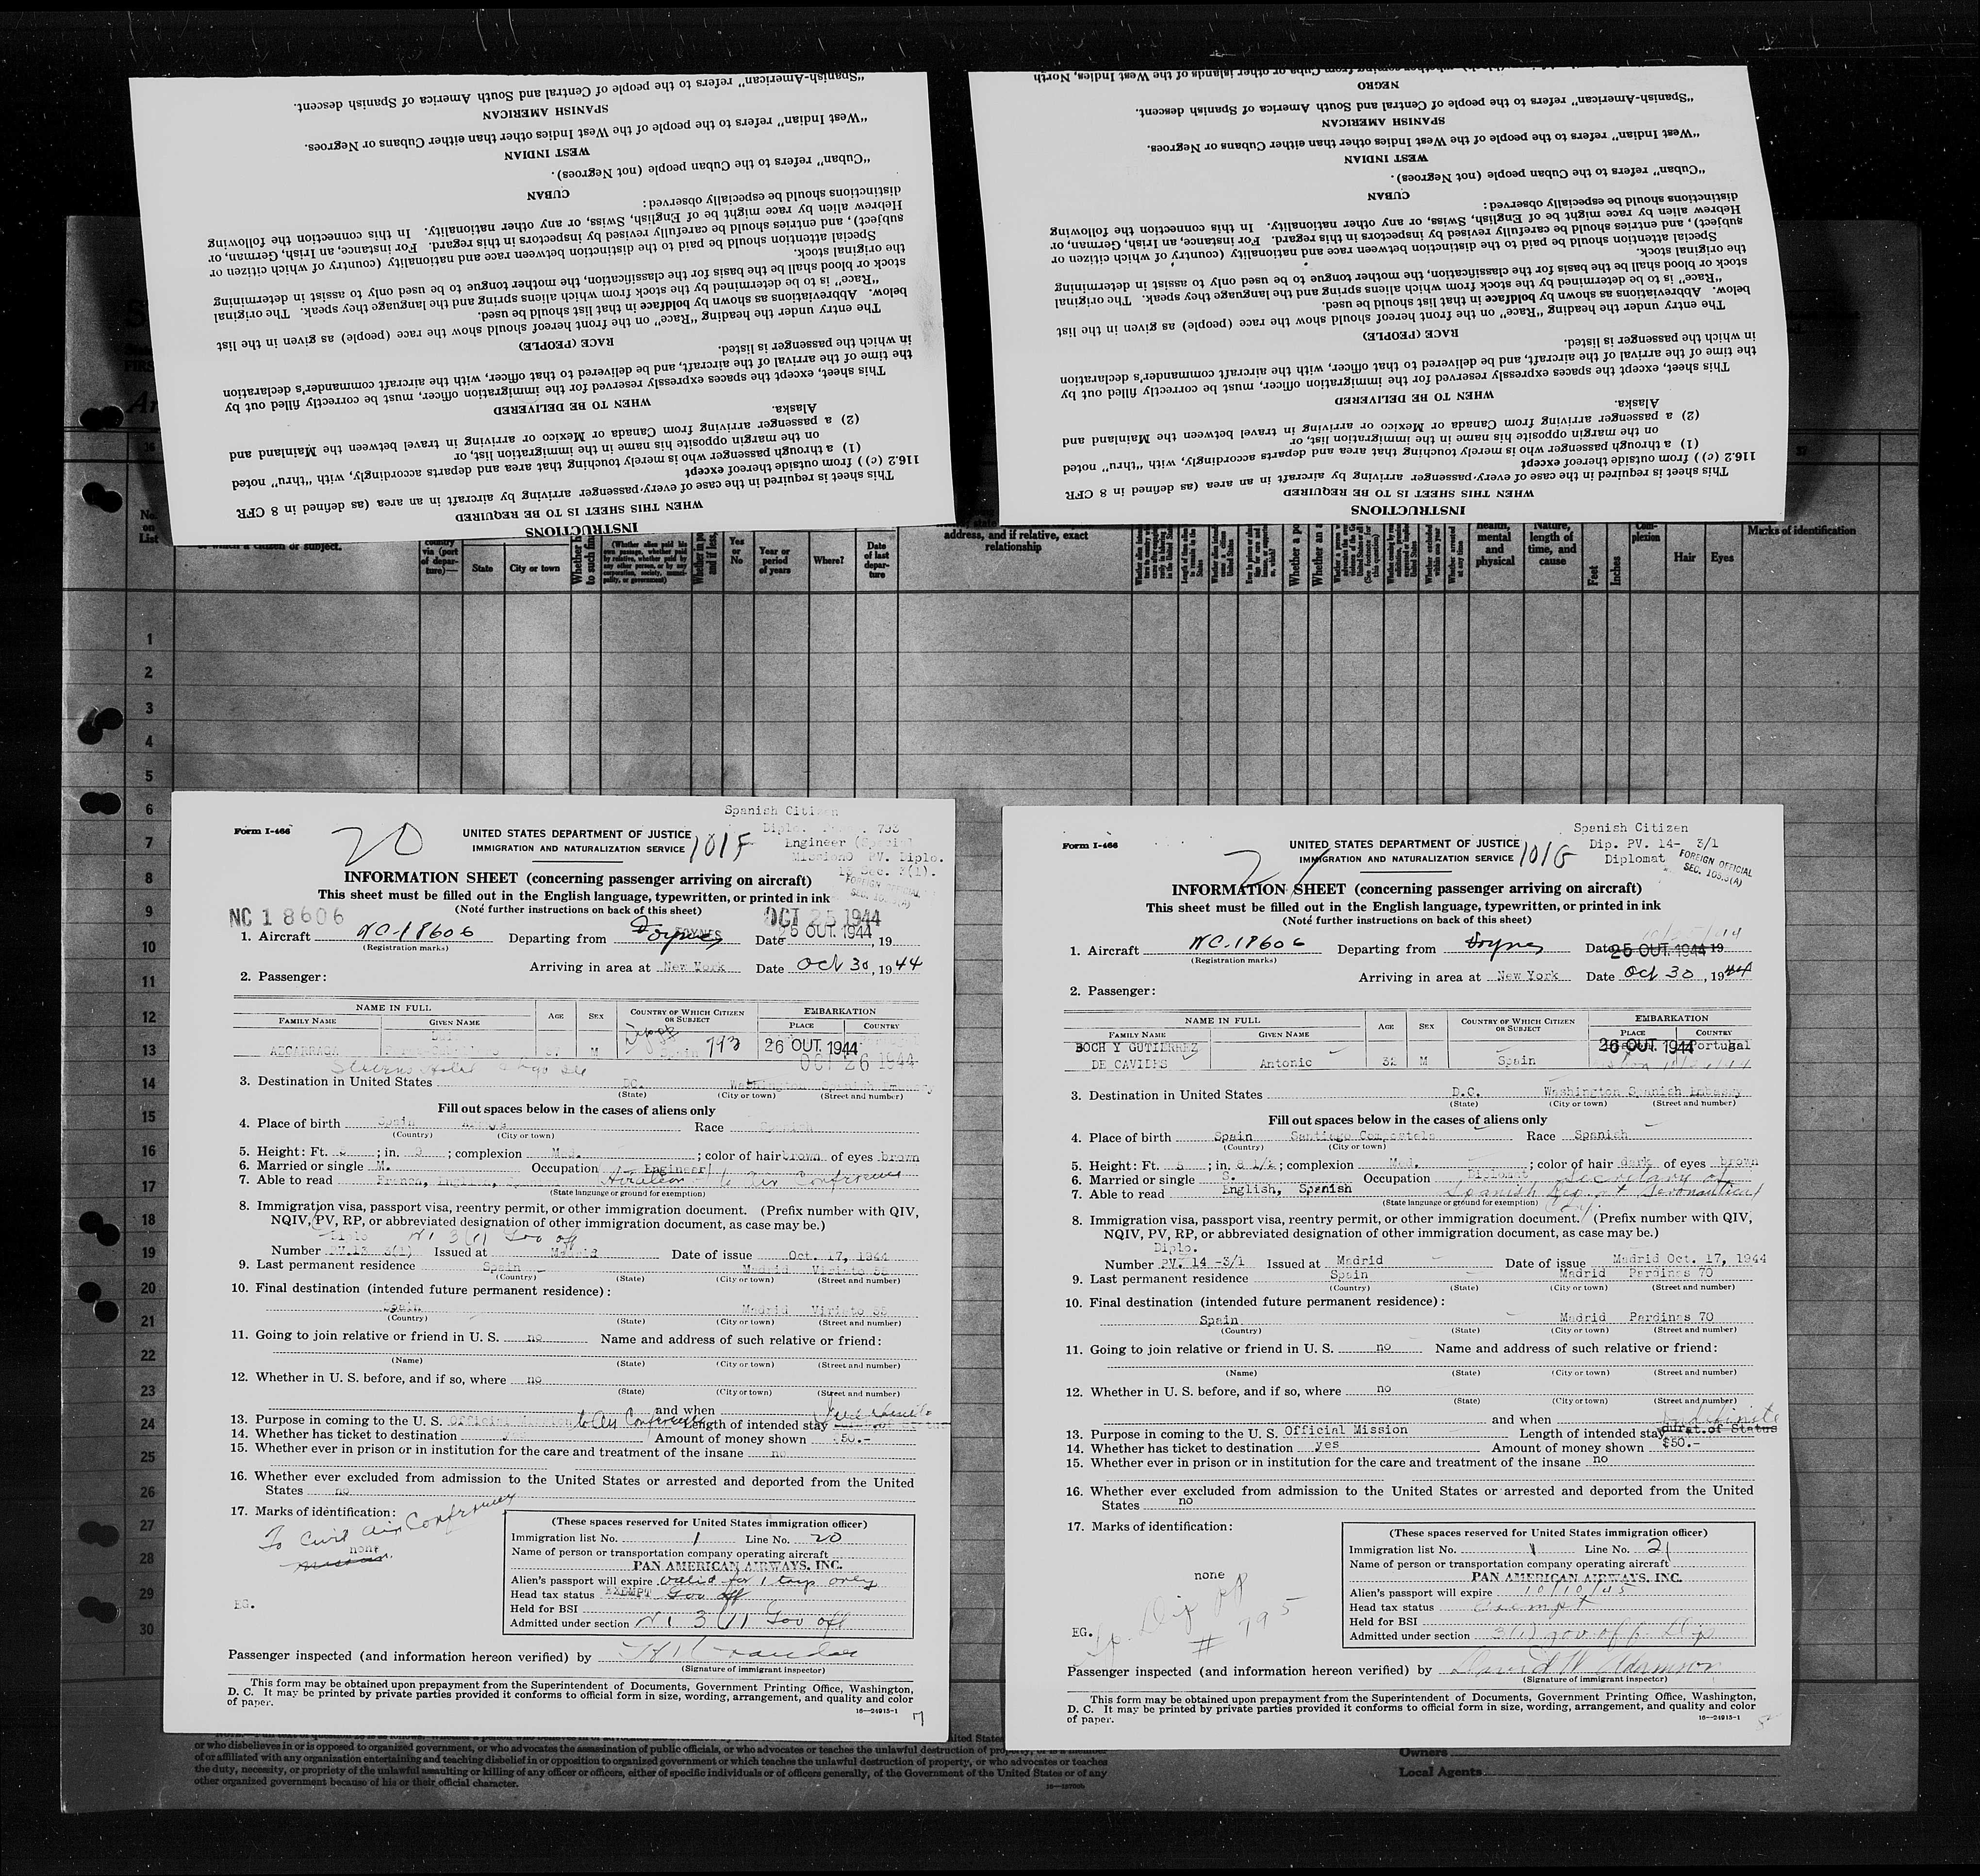 "Spanish-American" refers to the people of Central and South America of Spanish descent.
SPANISH AMERICAN
"West Indian" refers to the people of the West Indies other than either Cubans or Negroes.
WEST INDIAN
"Cuban" refers to the Cuban people (not Negroes).
CUBAN
distinctions should be especially observed:
Hebrew alien by race might be of English, Swiss, or any other nationality. In this connection the following
subject), and entries should be carefully revised by inspectors in this regard. For instance, an Irish, German, or
Special attention should be paid to the distinction between race and nationality (country of which citizen or
the original stock.
stock or blood shall be the basis for the classification, the mother tongue to be used only to assist in determining
"Race" is to be determined by the stock from which aliens spring and the language they speak. The original
below. Abbreviations as shown by boldface in that list should be used.
The entry under the heading "Race" on the front hereof should show the race (people) as given in the list
RACE (PEOPLE)
in which the passenger is listed.
the time of the arrival of the aircraft, and be delivered to that officer, with the aircraft commander's declaration
This sheet, except the spaces expressly reserved for the immigration officer, must be correctly filled out by
WHEN TO BE DELIVERED
Alaska.
(2) a passenger arriving from Canada or Mexico or arriving in travel between the Mainland and
on the margin opposite his name in the immigration list, or
(1) a through passenger who is merely touching that area and departs accordingly, with "thru" noted
116.2 (c)) from outside thereof except
This sheet is required in the case of every passenger arriving by aircraft in an area (as defined in 8 CFR
WHEN THIS SHEET IS TO BE REQUIRED
INSTRUCTIONS
whether coming from Cuba or other islands of the West Indies, North
NEGRO
"Spanish-American" refers to the people of Central and South America of Spanish descent.
SPANISH AMERICAN
"West Indian" refers to the people of the West Indies other than either Cubans or Negroes.
WEST INDIAN
"Cuban" refers to the Cuban people (not Negroes).
CUBAN
distinctions should be especially observed:
Hebrew alien by race might be of English, Swiss, or any other nationality. In this connection the following
subject), and entries should be carefully revised by inspectors in this regard. For instance, an Irish, German, or
Special attention should be paid to the distinction between race and nationality (country of which citizen or
the original stock.
stock or blood shall be the basis for the classification, the mother tongue to be used only to assist in determining
"Race" is to be determined by the stock from which aliens spring and the language they speak. The original
below. Abbreviations as shown by boldface in that list should be used.
The entry under the heading "Race" on the front hereof should show the race (people) as given in the list
RACE (PEOPLE)
in which the passenger is listed.
the time of the arrival of the aircraft, and be delivered to that officer, with the aircraft commander's declaration
This sheet, except the spaces expressly reserved for the immigration officer, must be correctly filled out by
WHEN TO BE DELIVERED
Alaska.
(2) a passenger arriving from Canada or Mexico or arriving in travel between the Mainland and
on the margin opposite his name in the immigration list, or
(1) a through passenger who is merely touching that area and departs accordingly, with "thru" noted
116.2 (c)) from outside thereof except
This sheet is required in the case of every passenger arriving by aircraft in an area (as defined in 8 CFR
WHEN THIS SHEET IS TO BE REQUIRED
INSTRUCTIONS
No. on List
via (port of departure)
State
City or town
Yes or No
Year or period of years
Where?
Date of last departure
address, and if relative, exact relationship
health, mental and physical
Nature, length of time, and cause
Feet
Inches
Complexion
Hair
Eyes
Marks of identification
1
2
3
4
5
6
7
8
9
10
11
12
13
14
15
16
17
18
19
20
21
22
23
24
25
26
27
28
29
30
Spanish Citizen
Form I-466
20
UNITED STATES DEPARTMENT OF JUSTICE
IMMIGRATION AND NATURALIZATION SERVICE
101F
793
Engineer (Special
Mission) PV. Diplo.
Sec. 3(1).
FOREIGN OFFICIAL
INFORMATION SHEET (concerning passenger arriving on aircraft)
This sheet must be filled out in the English language, typewritten, or printed in ink
(Note further instructions on back of this sheet)
NC 18606
OCT 25 1944
1. Aircraft NC-18606 Departing from Foynes Date 25 OUT. 1944, 19
(Registration marks)
Arriving in area at New York Date Oct 30, 1944
2. Passenger:
NAME IN FULL
FAMILY NAME
GIVEN NAME
AGE
SEX
COUNTRY OF WHICH CITIZEN OR SUBJECT
EMBARKATION
PLACE
COUNTRY
AZCARRAGA
M
Spain 793
26 OUT. 1944
OCT 26 1944
3. Destination in United States DC. Washington Spanish Embassy
(State) (City or town) (Street and number)
Fill out spaces below in the cases of aliens only
4. Place of birth Spain Race Spanish
(Country) (City or town)
5. Height: Ft. 5; in. 5; complexion Med.; color of hair brown of eyes brown
6. Married or single M. Occupation Engineer
7. Able to read French, English, Aviation to Air Conference
(State language or ground for exemption)
8. Immigration visa, passport visa, reentry permit, or other immigration document. (Prefix number with QIV,
NQIV, PV, RP, or abbreviated designation of other immigration document, as case may be.)
Diplo 3(1) Gov off
Number PV.13 3(1) Issued at Madrid Date of issue Oct. 17, 1944
9. Last permanent residence Spain Madrid Viriato
(Country) (State) (City or town) (Street and number)
10. Final destination (intended future permanent residence):
Spain Madrid Viriato
(Country) (State) (City or town) (Street and number)
11. Going to join relative or friend in U. S. no Name and address of such relative or friend:
(Name) (State) (City or town) (Street and number)
12. Whether in U. S. before, and if so, where no
(State) (City or town) (Street and number)
and when
13. Purpose in coming to the U. S. Official Mission to Air Conference Length of intended stay
14. Whether has ticket to destination Amount of money shown $50.-
15. Whether ever in prison or in institution for the care and treatment of the insane no
16. Whether ever excluded from admission to the United States or arrested and deported from the United
States no
17. Marks of identification:
To Civil Air Conference
none
EG.
(These spaces reserved for United States immigration officer)
Immigration list No. 1 Line No. 20
Name of person or transportation company operating aircraft
PAN AMERICAN AIRWAYS, INC.
Alien's passport will expire valid for 1 trip only
Head tax status EXEMPT Gov off
Held for BSI
Admitted under section 3(1) Gov off
Passenger inspected (and information hereon verified) by
(Signature of immigrant inspector)
This form may be obtained upon prepayment from the Superintendent of Documents, Government Printing Office, Washington,
D. C. It may be printed by private parties provided it conforms to official form in size, wording, arrangement, and quality and color
of paper.
16—24915-1
7
Spanish Citizen
Dip. PV. 14- 3/1
Diplomat
FOREIGN OFFICIAL
SEC. 103.3(A)
Form I-466
21
UNITED STATES DEPARTMENT OF JUSTICE
IMMIGRATION AND NATURALIZATION SERVICE
101G
INFORMATION SHEET (concerning passenger arriving on aircraft)
This sheet must be filled out in the English language, typewritten, or printed in ink
(Note further instructions on back of this sheet)
1. Aircraft NC-18606 Departing from Foynes Date 25 OUT. 1944 19
(Registration marks)
Arriving in area at New York Date Oct 30, 1944
2. Passenger:
NAME IN FULL
FAMILY NAME
GIVEN NAME
AGE
SEX
COUNTRY OF WHICH CITIZEN OR SUBJECT
EMBARKATION
PLACE
COUNTRY
BOCH Y GUTIERREZ
DE CAVIDES Antonio 32 M Spain
26 OUT. 1944 Portugal
3. Destination in United States D.C. Washington Spanish Embassy
(State) (City or town) (Street and number)
Fill out spaces below in the cases of aliens only
4. Place of birth Spain Santiago Compostela Race Spanish
(Country) (City or town)
5. Height: Ft. 5; in. 8 1/2; complexion Med.; color of hair dark of eyes brown
6. Married or single S. Occupation Diplomat Secretary of
7. Able to read English, Spanish Spanish Aeronautical
(State language or ground for exemption)
8. Immigration visa, passport visa, reentry permit, or other immigration document. (Prefix number with QIV,
NQIV, PV, RP, or abbreviated designation of other immigration document, as case may be.)
Diplo.
Number PV. 14 -3/1 Issued at Madrid Date of issue Madrid Oct. 17, 1944
9. Last permanent residence Spain Madrid Pardinas 70
(Country) (State) (City or town) (Street and number)
10. Final destination (intended future permanent residence):
Spain Madrid Pardinas 70
(Country) (State) (City or town) (Street and number)
11. Going to join relative or friend in U. S. no Name and address of such relative or friend:
(Name) (State) (City or town) (Street and number)
12. Whether in U. S. before, and if so, where no
(State) (City or town) (Street and number)
and when Indefinite
13. Purpose in coming to the U. S. Official Mission Length of intended stay durat.of Status
14. Whether has ticket to destination yes Amount of money shown $50.-
15. Whether ever in prison or in institution for the care and treatment of the insane no
16. Whether ever excluded from admission to the United States or arrested and deported from the United
States no
17. Marks of identification:
none
Dip
# 795
EG.
(These spaces reserved for United States immigration officer)
Immigration list No. 1 Line No. 21
Name of person or transportation company operating aircraft
PAN AMERICAN AIRWAYS, INC.
Alien's passport will expire 10/10/45
Head tax status Exempt
Held for BSI
Admitted under section 3(1) gov off Dip
Passenger inspected (and information hereon verified) by David W. Adamson
(Signature of immigrant inspector)
This form may be obtained upon prepayment from the Superintendent of Documents, Government Printing Office, Washington,
D. C. It may be printed by private parties provided it conforms to official form in size, wording, arrangement, and quality and color
of paper.
16—24915-1
or who disbelieves in or is opposed to organized government, or who advocates the assassination of public officials, or who advocates or teaches the unlawful destruction of property, or is a member
of or affiliated with any organization entertaining and teaching disbelief in or opposition to organized government or which teaches the unlawful destruction of property, or who advocates or teaches
the duty, necessity, or propriety of the unlawful assaulting or killing of any officer or officers, either of specific individuals or of officers generally, of the Government of the United States or of any
other organized government because of his or their official character.
Owners
Local Agents